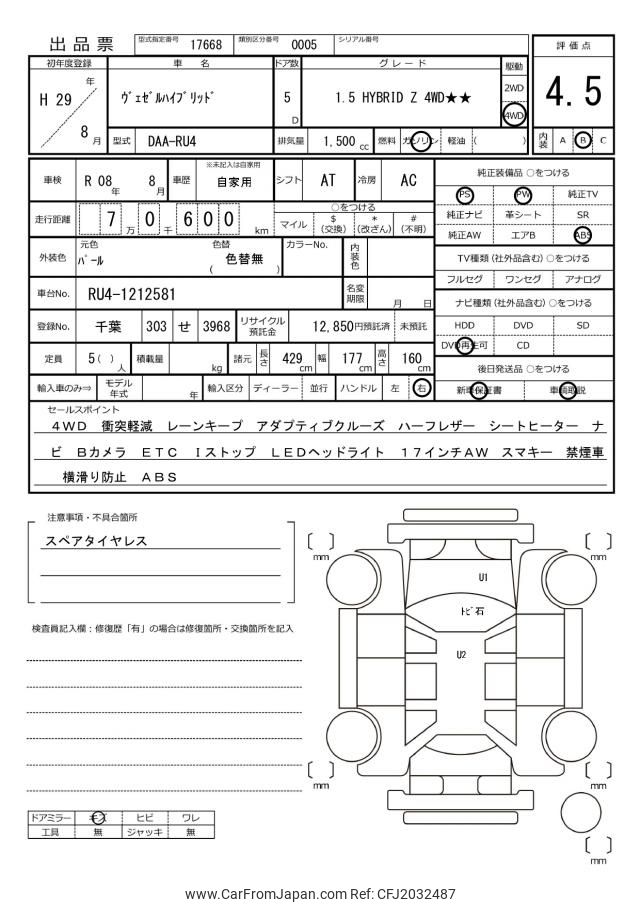 出品票
型式指定番号 17668 類別区分番号 0005 シリアル番号
評価点
4.5
初年度登録 車名 ドア数 グレード 駆動
H 29 年
8 月
ヴェゼルハイブリッド
5 D
1.5 HYBRID Z 4WD★★
2WD
4WD
型式 DAA-RU4 排気量 1,500 cc 燃料 ガソリン 軽油 ( )
内装 A B C
車検 R 08 年 8 月 車歴 ※未記入は自家用 自家用 シフト AT 冷房 AC
純正装備品 ○をつける
PS PW 純正TV
純正ナビ 革シート SR
純正AW エアB ABS
走行距離 7 万 0 千 6 0 0 km
○をつける
マイル $ (交換) * (改ざん) # (不明)
外装色 元色 パール 色替 ( 色替無 ) カラーNo. 内装色
TV種類(社外品含む) ○をつける
フルセグ ワンセグ アナログ
車台No. RU4-1212581 名変期限 月 日
ナビ種類(社外品含む) ○をつける
登録No. 千葉 303 せ 3968 リサイクル預託金 12,850円預託済 未預託
HDD DVD SD
DVD再生可 CD
定員 5( ) 人 積載量 kg 諸元 長さ 429 cm 幅 177 cm 高さ 160 cm
後日発送品 ○をつける
新車保証書 車輌取説
輸入車のみ⇒ モデル年式 年 輸入区分 ディーラー 並行 ハンドル 左 右
セールスポイント
4WD 衝突軽減 レーンキープ アダプティブクルーズ ハーフレザー シートヒーター ナ
ビ Bカメラ ETC Iストップ LEDヘッドライト 17インチAW スマキー 禁煙車
横滑り防止 ABS
注意事項・不具合箇所
スペアタイヤレス
検査員記入欄：修復歴「有」の場合は修復箇所・交換箇所を記入
mm
mm
U1
トビ石
U2
mm
mm
mm
ドアミラー キズ ヒビ ワレ
工具 無 ジャッキ 無
www.CarFromJapan.com Ref: CFJ2032487